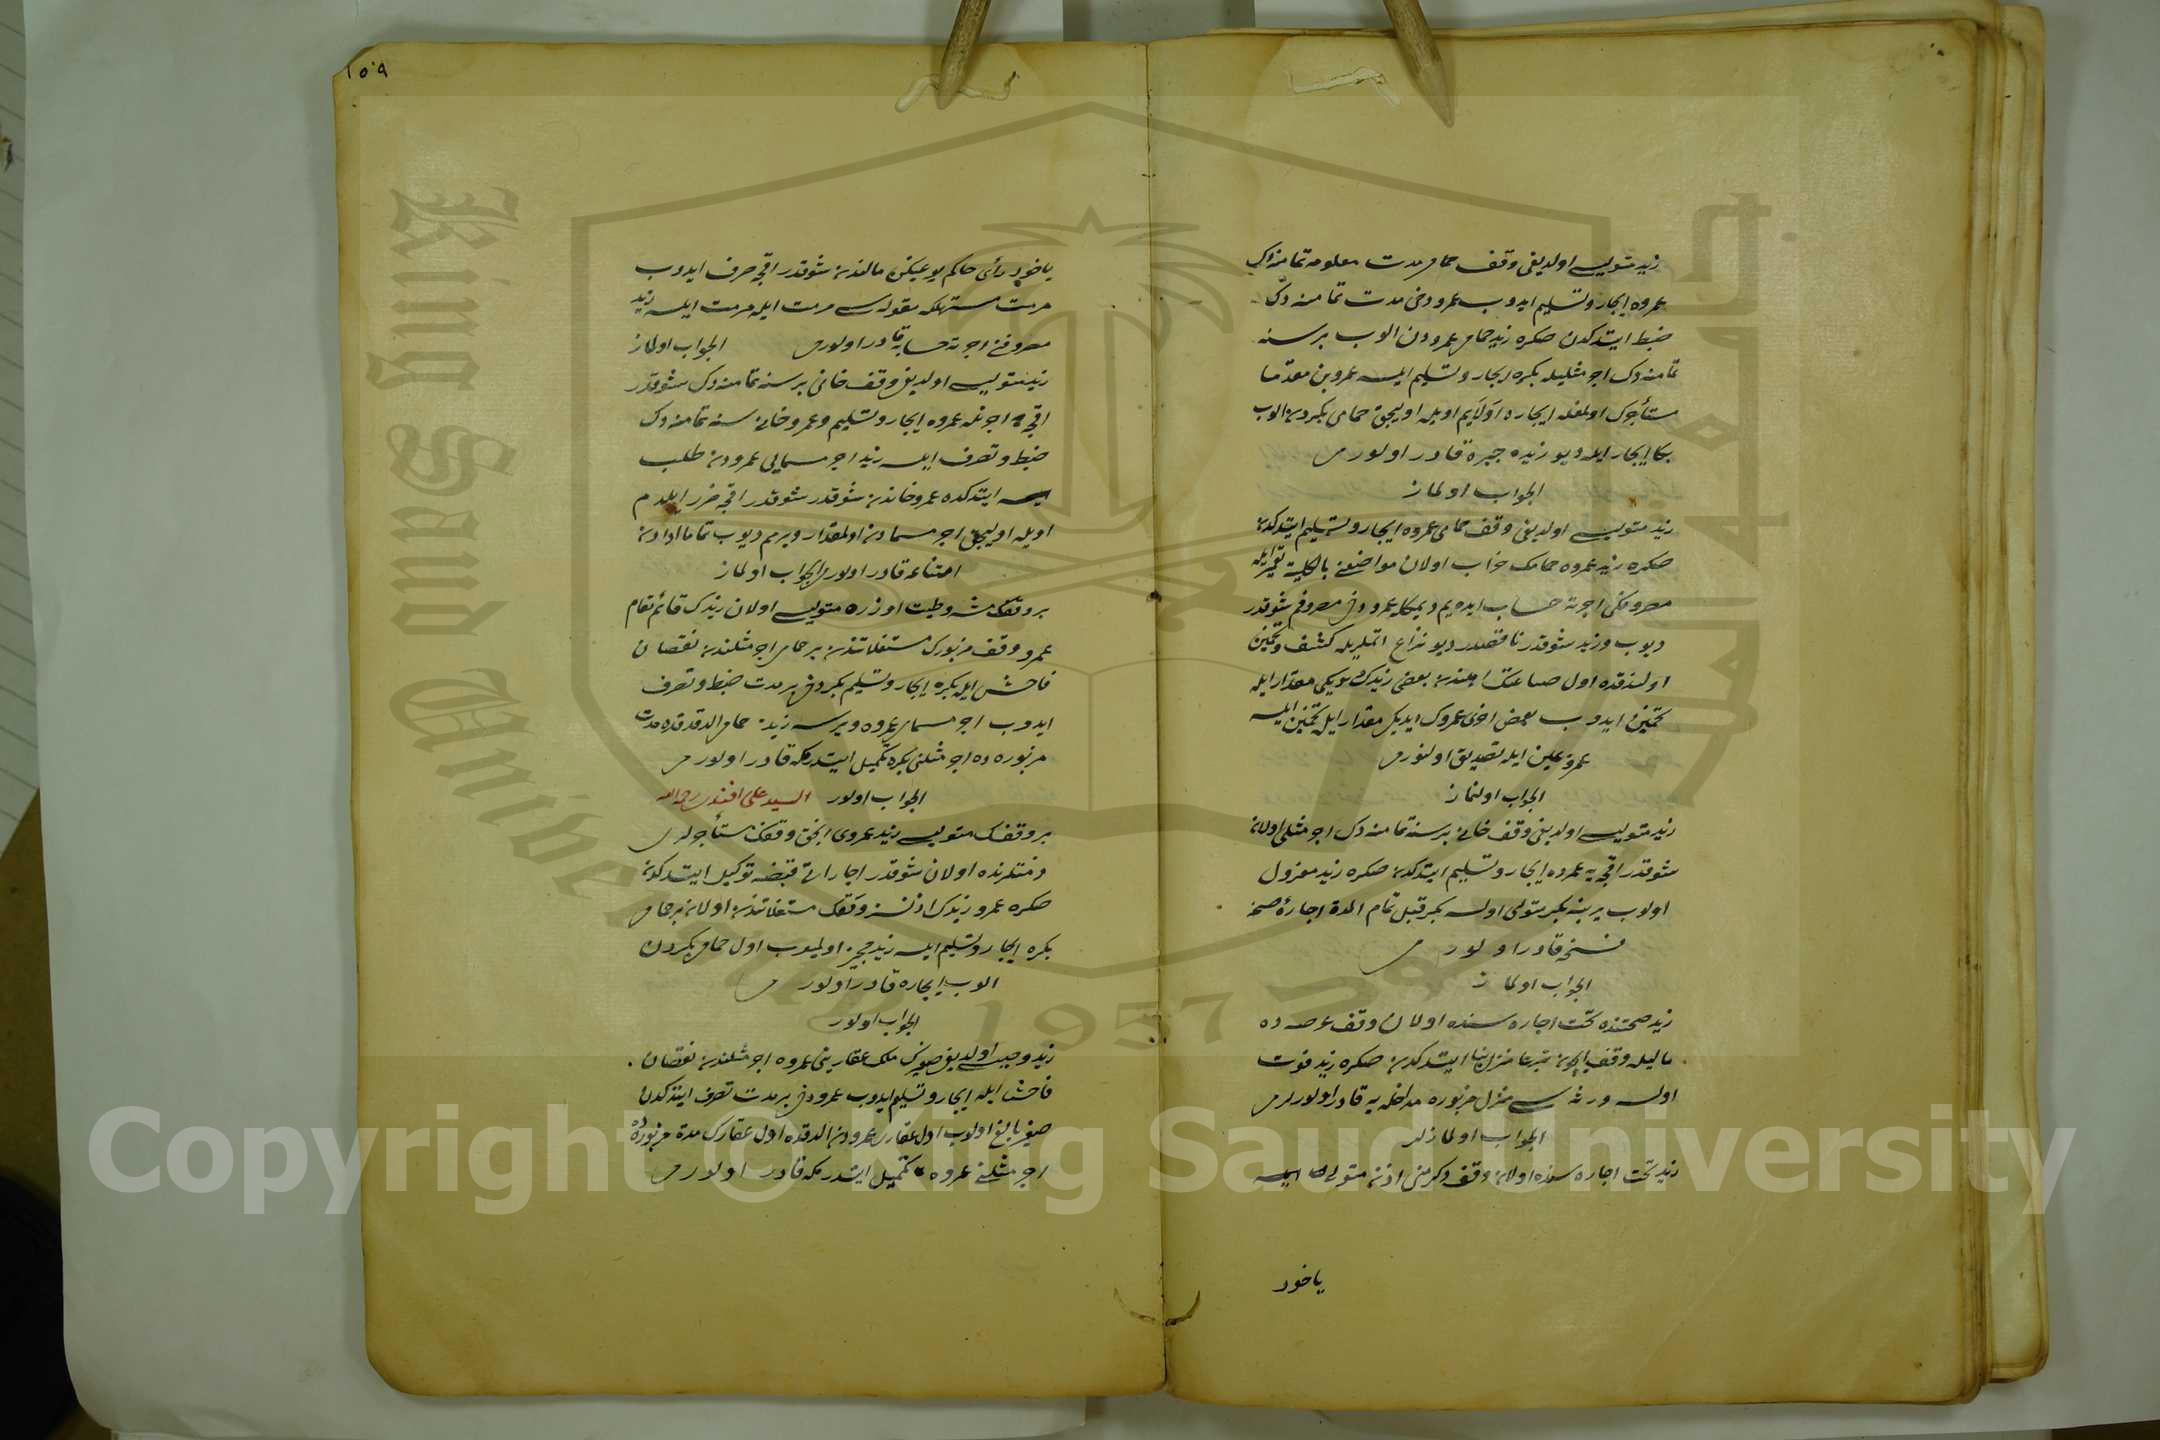 زيد متوليسى اولديغى وقف حمامى مدت معلومه تمامنه دك
عمروه ايجار وتسليم ايدوب عمرو دخى مدت تمامنه دك
ضبط ايتدكدن صكره زيد حمامى عمرودن الوب برسنه
تمامنه دك اجر مثليله بكره ايجار وتسليم ايلسه عمرو بن مقدما
مستأجرى اولمغله ايجاره اولى ايم اويله اوليجق حمامى بكردن الوب
بكا ايجار ايله ديو زيده جبره قادر اولورمى
الجواب اولماز
زيد متوليسى اولديغى وقف حمامى عمروه ايجار وتسليم ايتدكدن
صكره زيد عمروه حمامك خراب اولان مواضعنى بالكليه تعمير ايله
مصروفكى اجرته حساب ايده يم ديمكله عمرو دخى مصروفم شوقدر
ديوب وزيد شوقدر ناقصدر ديو نزاع ايتمليله كشف وتخمين
اولندقده اول صناعتك اهلندن بعضى زيدك ديديكى مقدار ايله
تخمين ايدوب بعض اخرى عمروك ايديكى مقدار ايله تخمين ايلسه
عمرو يمين ايله تصديق اولنورمى
الجواب اولنماز
زيد متوليسى اولديغى وقف خانى برسنه تمامنه دك اجر مثلى اولان
شوقدر اقچه يه عمروه ايجار وتسليم ايتدكدن صكره زيد معزول
اولوب يرينه بكر متولى اولسه بكر قبل تمام المدة اجارۀ صحه
فسخه قادر اولورمى
الجواب اولماز
زيد صحتنده تحت اجاره سنده اولان وقف عرصه ده
ماليله وقف ايچون تبرعا منزل بنا ايتدكدن صكره زيد فوت
اولسه ورثه سى منزل مزبوره مداخله يه قادر اولورلرمى
الجواب اولمازلر
زيد تحت اجاره سنده اولان وقف دكرمنى اذن متولى ايله
ياخود
١٥٩
ياخود رأى حاكم يوغيكن مالندن شوقدر اقچه صرف ايدوب
مرمت مستهلكه مقوله سى مرمت ايله مرمت ايلسه زيد
مصروفنى اجرته حسابه قادر اولورمى الجواب اولماز
زيد متوليسى اولديغى وقف خانى برسنه تمامنه دك شوقدر
اقچه اجرتله عمروه ايجار وتسليم وعمرو خانى سنه تمامنه دك
ضبط وتصرف ايلسه زيد اجر مسمايى عمرودن طلب
ايتدكده عمرو خاندن شوقدر شوقدر اقچه ضرر ايلدم
اويله اوليجق اجر مسمادن اولمقدار ويرمم ديوب تماما ادادن
امتناعه قادر اولورمى الجواب اولماز
بر وقفك مشروطيت اوزره متوليسى اولان زيدك قائمقام
عمرو وقف مزبورك مستغلاتندن بر حمامى اجر مثلندن نقصان
فاحش ايله بكره ايجار وتسليم بكر دخى بر مدت ضبط وتصرف
ايدوب اجر مسمايى عمروه ويرسه زيد حمامى الدقده مدت
مزبوره ده اجر مثلنى بكره تكميل ايتدرمكه قادر اولورمى
الجواب اولور السيد على افندى رحمه الله
بر وقفك متوليسى زيد عمروى انجق وقفك مستأجرلرى
ذمتلرنده اولان شوقدر اجاراتى قبضه توكيل ايتدكدن
صكره عمرو زيدك اذنسز وقفك مستغلاتندن اولان بر حمامى
بكره ايجار وتسليم ايلسه زيد مجيز اولميوب اول حمامى بكردن
الوب ايجاره قادر اولورمى
الجواب اولور
زيد وصيسى اولديغى صغيرك ملك عقارينى عمروه اجر مثلندن نقصان
فاحش ايله ايجار وتسليم ايدوب عمرو دخى بر مدت تصرف ايتدكدن
صغير بالغ اولوب اول عقارى عمرودن الدقده اول عقارك مدة مزبوره ده
اجر مثلنى عمروه تكميل ايتدرمكه قادر اولورمى
King Saud University
1957
Copyright © King Saud University